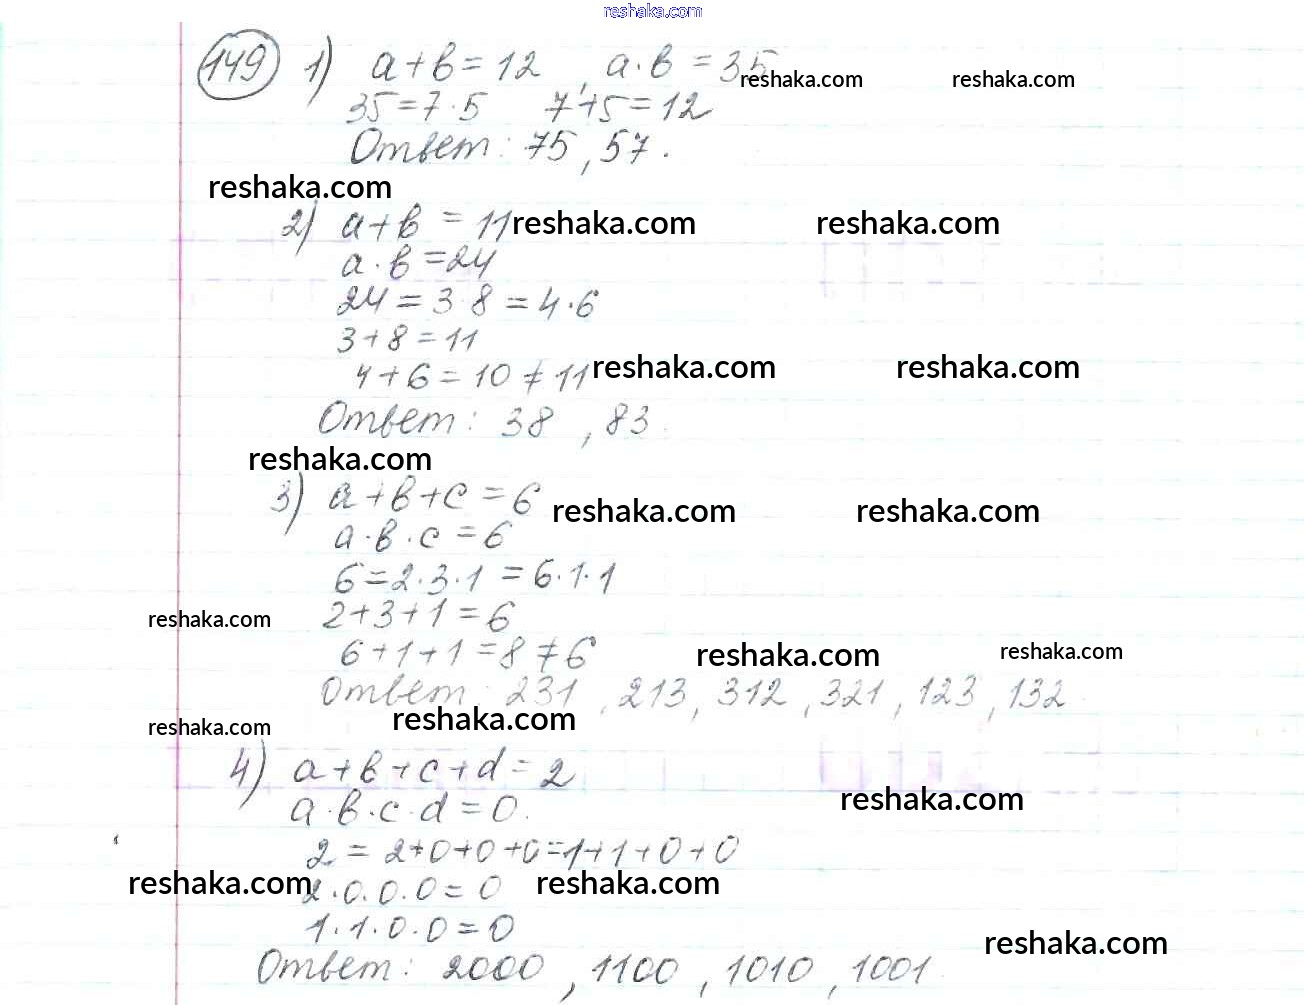 reshaka.com
149 1) a+b=12, a·b=35
reshaka.com reshaka.com
35=7·5 7+5=12
Ответ: 75, 57.
reshaka.com
2) a+b=11
reshaka.com reshaka.com
a·b=24
24=3·8=4·6
3+8=11
4+6=10≠11
reshaka.com reshaka.com
Ответ: 38, 83.
reshaka.com
3) a+b+c=6
reshaka.com reshaka.com
a·b·c=6
6=2·3·1=6·1·1
reshaka.com
2+3+1=6
6+1+1=8≠6
reshaka.com reshaka.com
Ответ: 231, 213, 312, 321, 123, 132.
reshaka.com reshaka.com
4) a+b+c+d=2
reshaka.com
a·b·c·d=0.
2=2+0+0+0=1+1+0+0
reshaka.com reshaka.com
2·0·0·0=0
1·1·0·0=0
reshaka.com
Ответ: 2000, 1100, 1010, 1001.